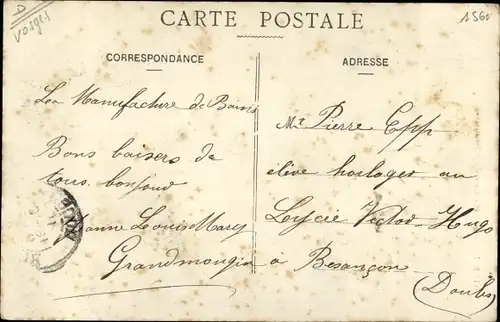 D
Vosges
CARTE POSTALE
1560
CORRESPONDANCE
La Manufacture de Bains
Bons baisers de
tous.
Jeanne Louis Mary
Grandmougin
ADRESSE
Mr Pierre Epp
élève horloger au
Lycée Victor-Hugo
à Besançon
(Doubs)